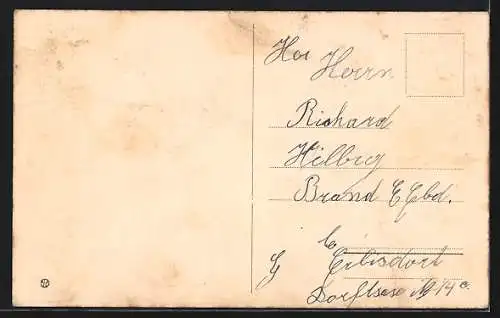 Her Herrn
Richard
Hilbig
Brand E Ebd.
Erbisdorf
Dorfstrase No 14 a